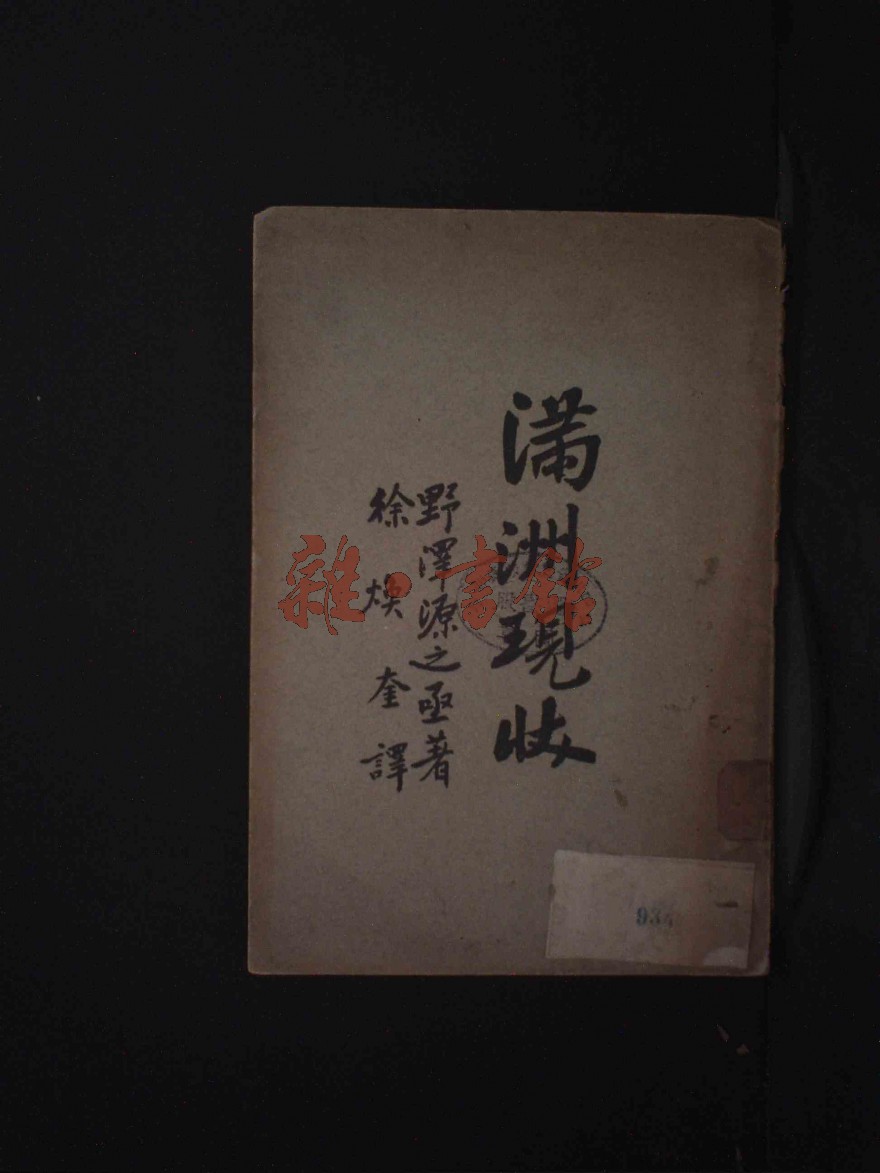 滿洲現狀
野澤源之亟著
徐煥奎譯
雜·書館
一
93